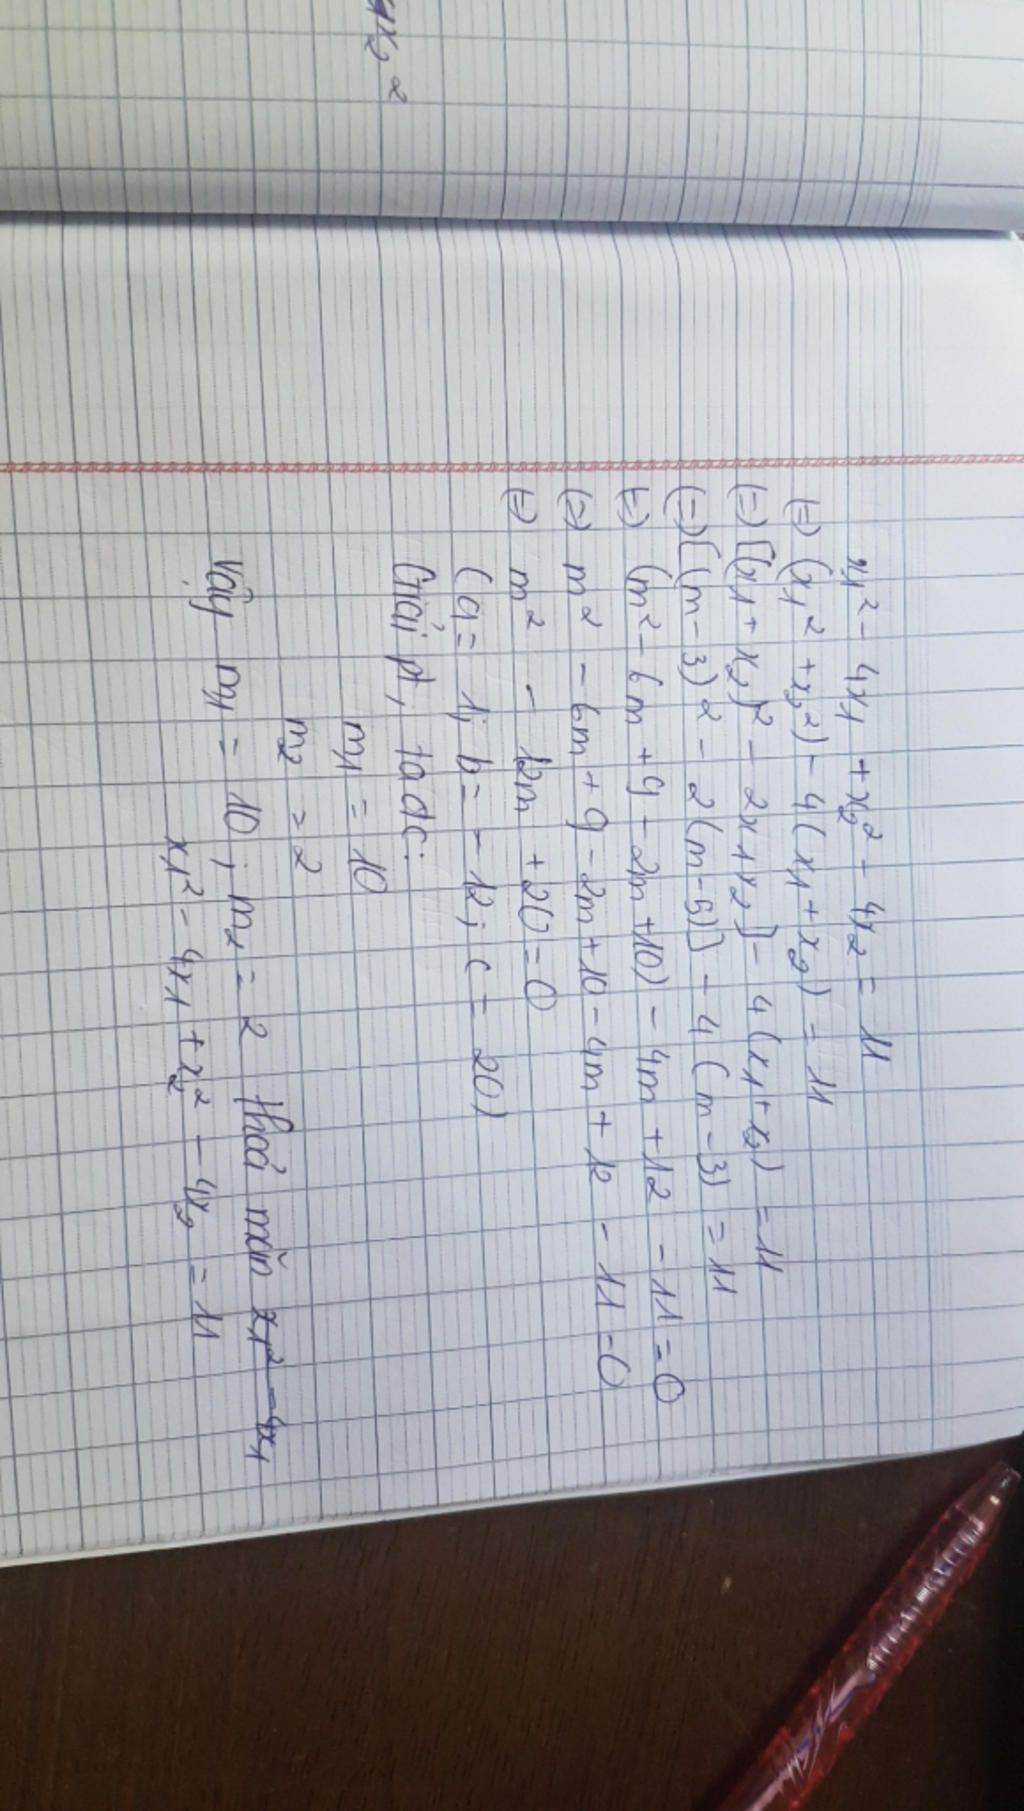 4x₂²
x₁² - 4x₁ + x₂² - 4x₂ = 11
(=) (x₁² + x₂²) - 4(x₁ + x₂) = 11
(=) [(x₁ + x₂)² - 2x₁+x₂] - 4(x₁ + x₂) = 11
(=) [(m - 3)² - 2(m - 5)] - 4(m - 3) = 11
(=) (m² - 6m + 9 - 2m + 10) - 4m + 12 - 11 = 0
(=) m² - 6m + 9 - 2m + 10 - 4m + 12 - 11 = 0
(=) m² - 12m + 20 = 0
(a = 1; b = -12; c = 20)
Giải pt, ta dc:
m₁ = 10
m₂ = 2
Vậy m₁ = 10; m₂ = 2 thoả mãn x₁² - 4x₁
x₁² - 4x₁ + x₂² - 4x₂ = 11